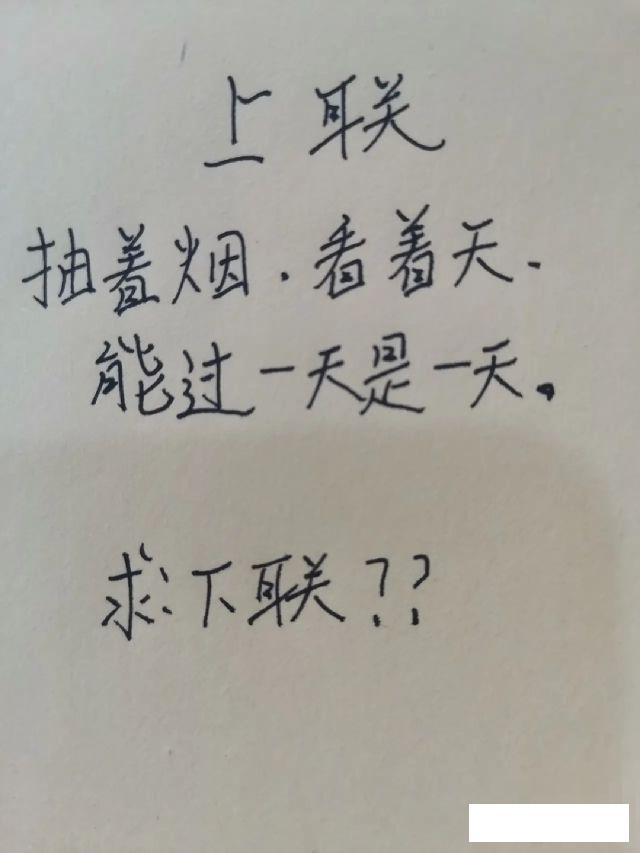 上联
抽着烟.看着天.
能过一天是一天。
求:下联??